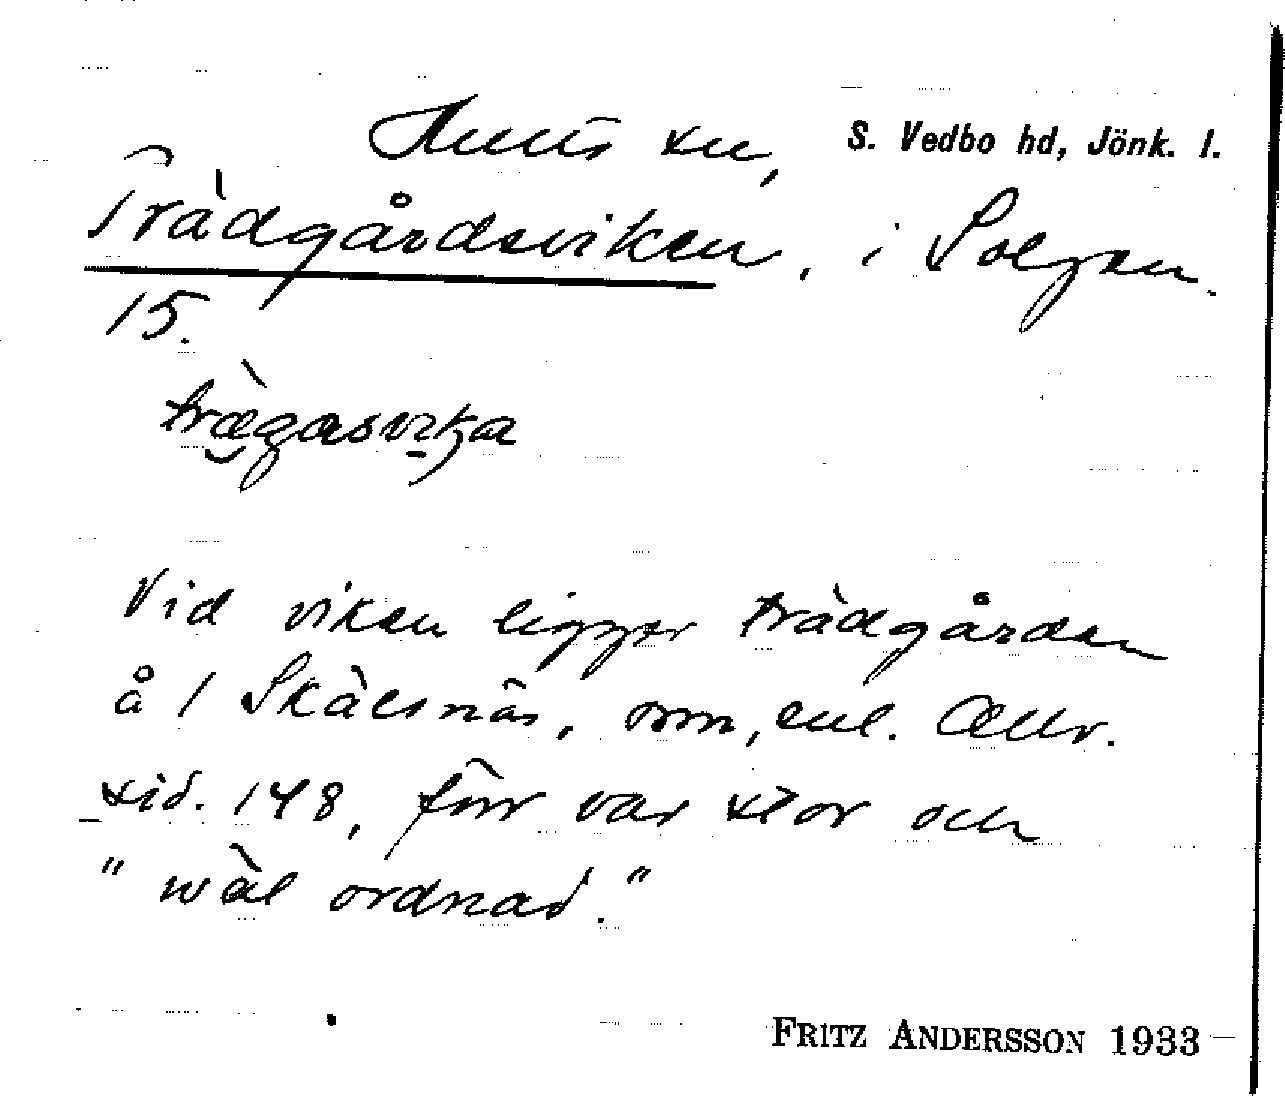 Hults sn, S. Vedbo hd, Jönk. l.
Trädgårdsviken, i Solgen.
15.
Vid viken ligger trädgården
å 1 Skälsnäs, som, enl. Allv.
sid. 148, förr var stor och
"wäl ordnad."
FRITZ ANDERSSON 1933